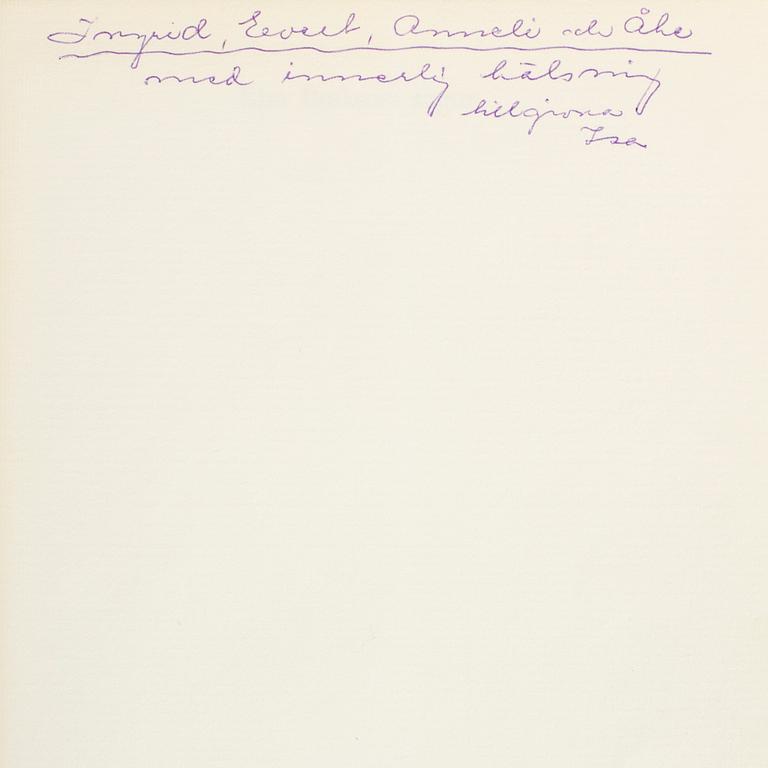 Ingrid, Eevert, Anneli och Åke
med innerlig hälsning
tillgivna
Isa